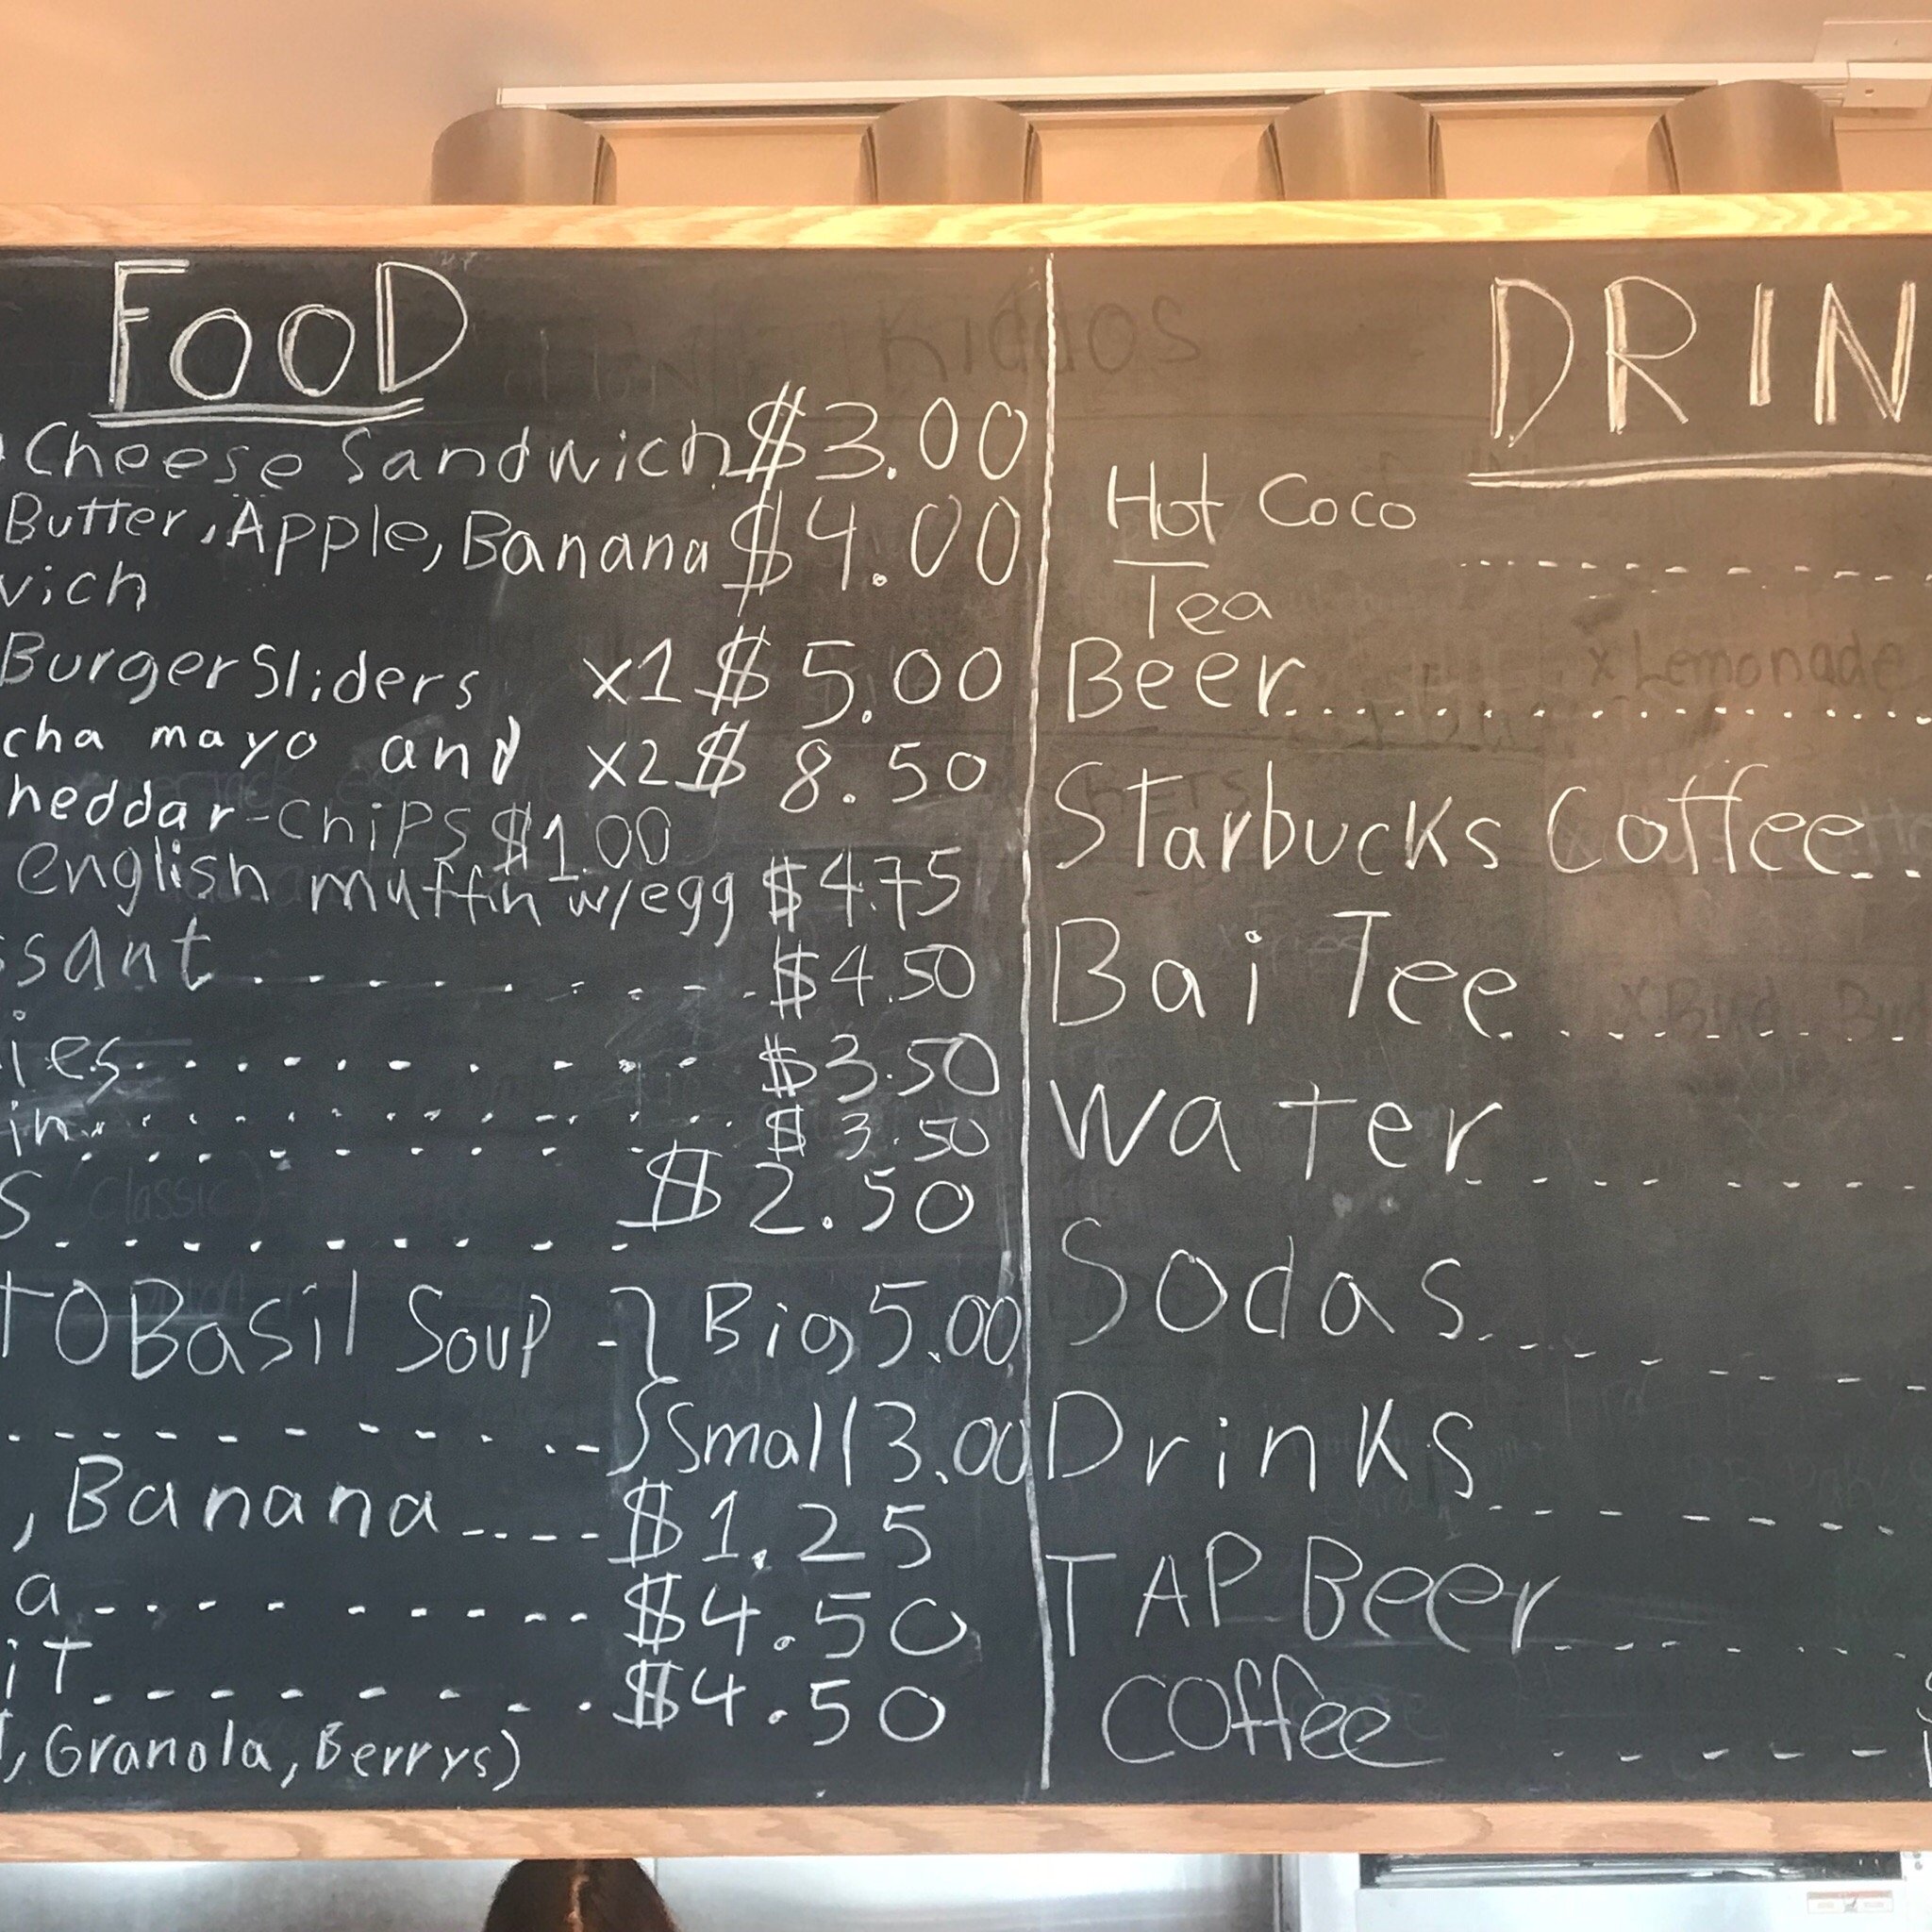 FOOD
Cheese Sandwich $3.00
Butter, Apple, Banana $4.00
wich
Burger Sliders x1 $5.00
cha mayo and x2 $8.50
heddar - Chips $1.00
english muffin w/egg $4.75
ssant........$4.50
ies.........$3.50
in..........$3.50
s (Classic)
.........$2.50
TO Basil Soup -} Big 5.00
---------} Small 3.00
, Banana----$1.25
a---------$4.50
iT---------$4.50
, Granola, Berrys)
Kiddos
DRIN
Hot Coco
Tea
Beer..............
x Lemonade
Starbucks Coffee...
Bai Tee.......
Water.......
Sodas.......
Drinks.......
TAP Beer.......
Coffee -----